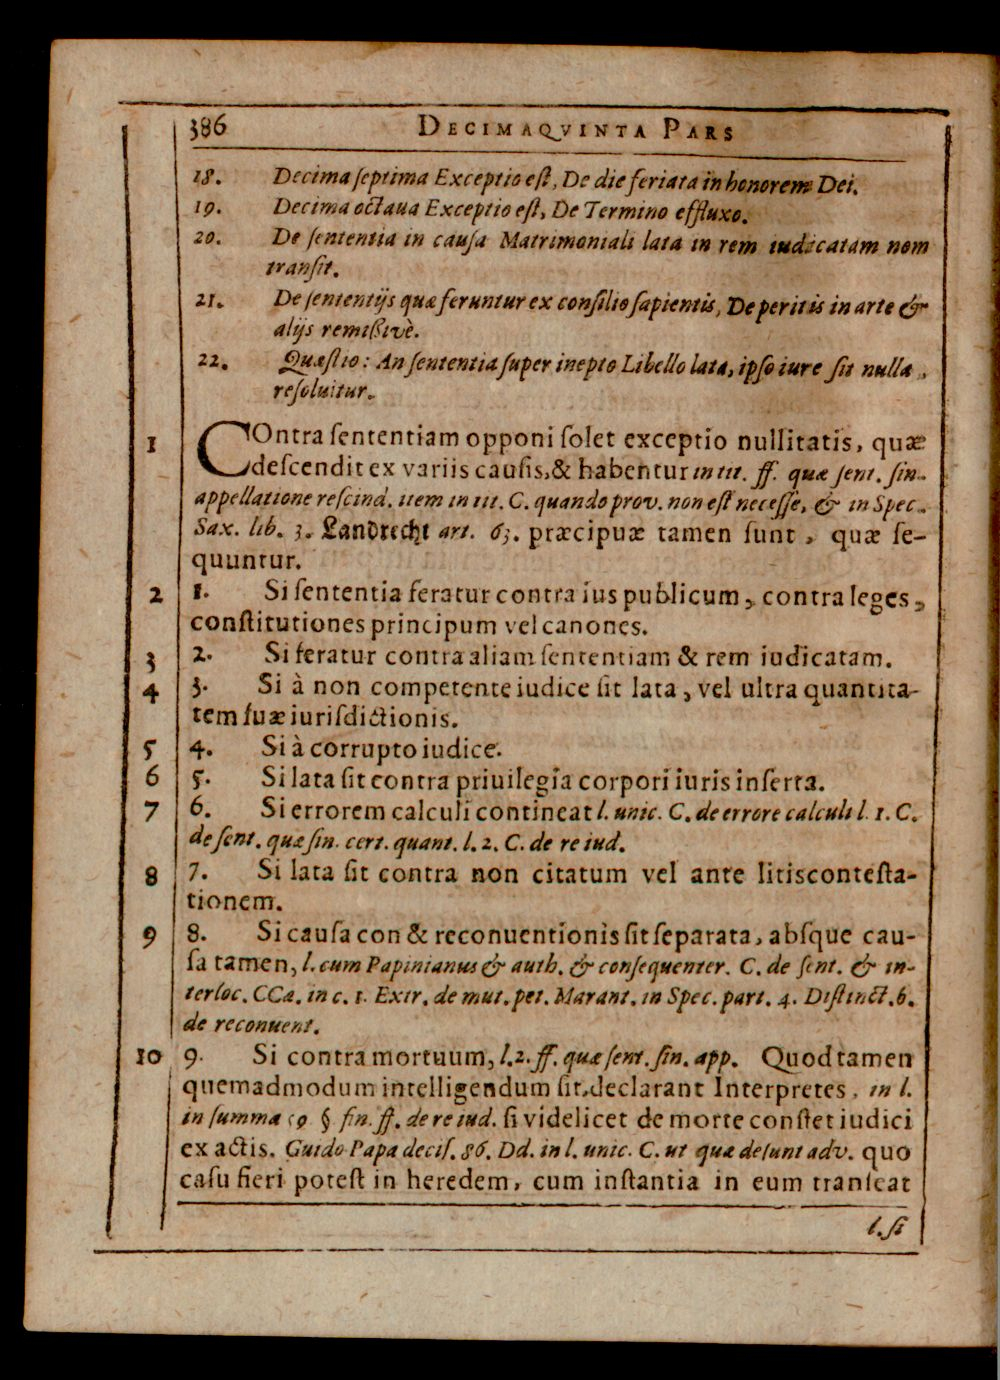 386 DECIMAQVINTA PARS
18. Decima ſeptima Exceptio eſt, De die feriata in honorem Dei.
19. Decima octaua Exceptio eſt, De Termino effluxo.
20. De ſententia in cauſa Matrimoniali lata in rem iudicatam non
tranſit.
21. De ſententijs quæ feruntur ex conſilio ſapientis, De peritis in arte &
alijs remißivè.
22. Quæſtio: An ſententia ſuper inepto Libello lata, ipſo iure ſit nulla,
reſoluitur.
1 COntra ſententiam opponi ſolet exceptio nullitatis, quæ
deſcendit ex variis cauſis, & habentur in tit. ff. quæ ſent. ſin.
appellatione reſcind. item in tit. C. quando prov. non eſt neceſſe, & in Spec.
Sax. lib. 3. Landrecht art. 63. præcipuæ tamen ſunt, quæ ſe-
quuntur.
2 1. Si ſententia feratur contra ius publicum, contra leges,
conſtitutiones principum vel canones.
3 2. Si feratur contra aliam ſententiam & rem iudicatam.
4 3. Si à non competente iudice ſit lata, vel ultra quantita-
tem ſuæ iuriſdictionis.
5 4. Si à corrupto iudice.
6 5. Si lata ſit contra priuilegia corpori iuris inſerta.
7 6. Si errorem calculi contineat l. unic. C. de errore calculi l. 1. C.
de ſent. quæ ſin. cert. quant. l. 2. C. de re iud.
8 7. Si lata ſit contra non citatum vel ante litisconteſta-
tionem.
9 8. Si cauſa con & reconuentionis ſit ſeparata, abſque cau-
ſa tamen, l. cum Papinianus & auth. & conſequenter. C. de ſent. & in-
terloc. CCa. in c. 1. Extr. de mut. pet. Marant. in Spec. part. 4. Diſtinct. 6.
de reconuent.
10 9. Si contra mortuum, l. 2. ff. quæ ſent. ſin. app. Quod tamen
quemadmodum intelligendum ſit, declarant Interpretes, in l.
in ſumma § fin. ff. de re iud. ſi videlicet de morte conſtet iudici
ex actis. Guido Papa deciſ. 86. Dd. in l. unic. C. ut quæ deſunt adv. quo
caſu fieri poteſt in heredem, cum inſtantia in eum tranſeat
l. ſi